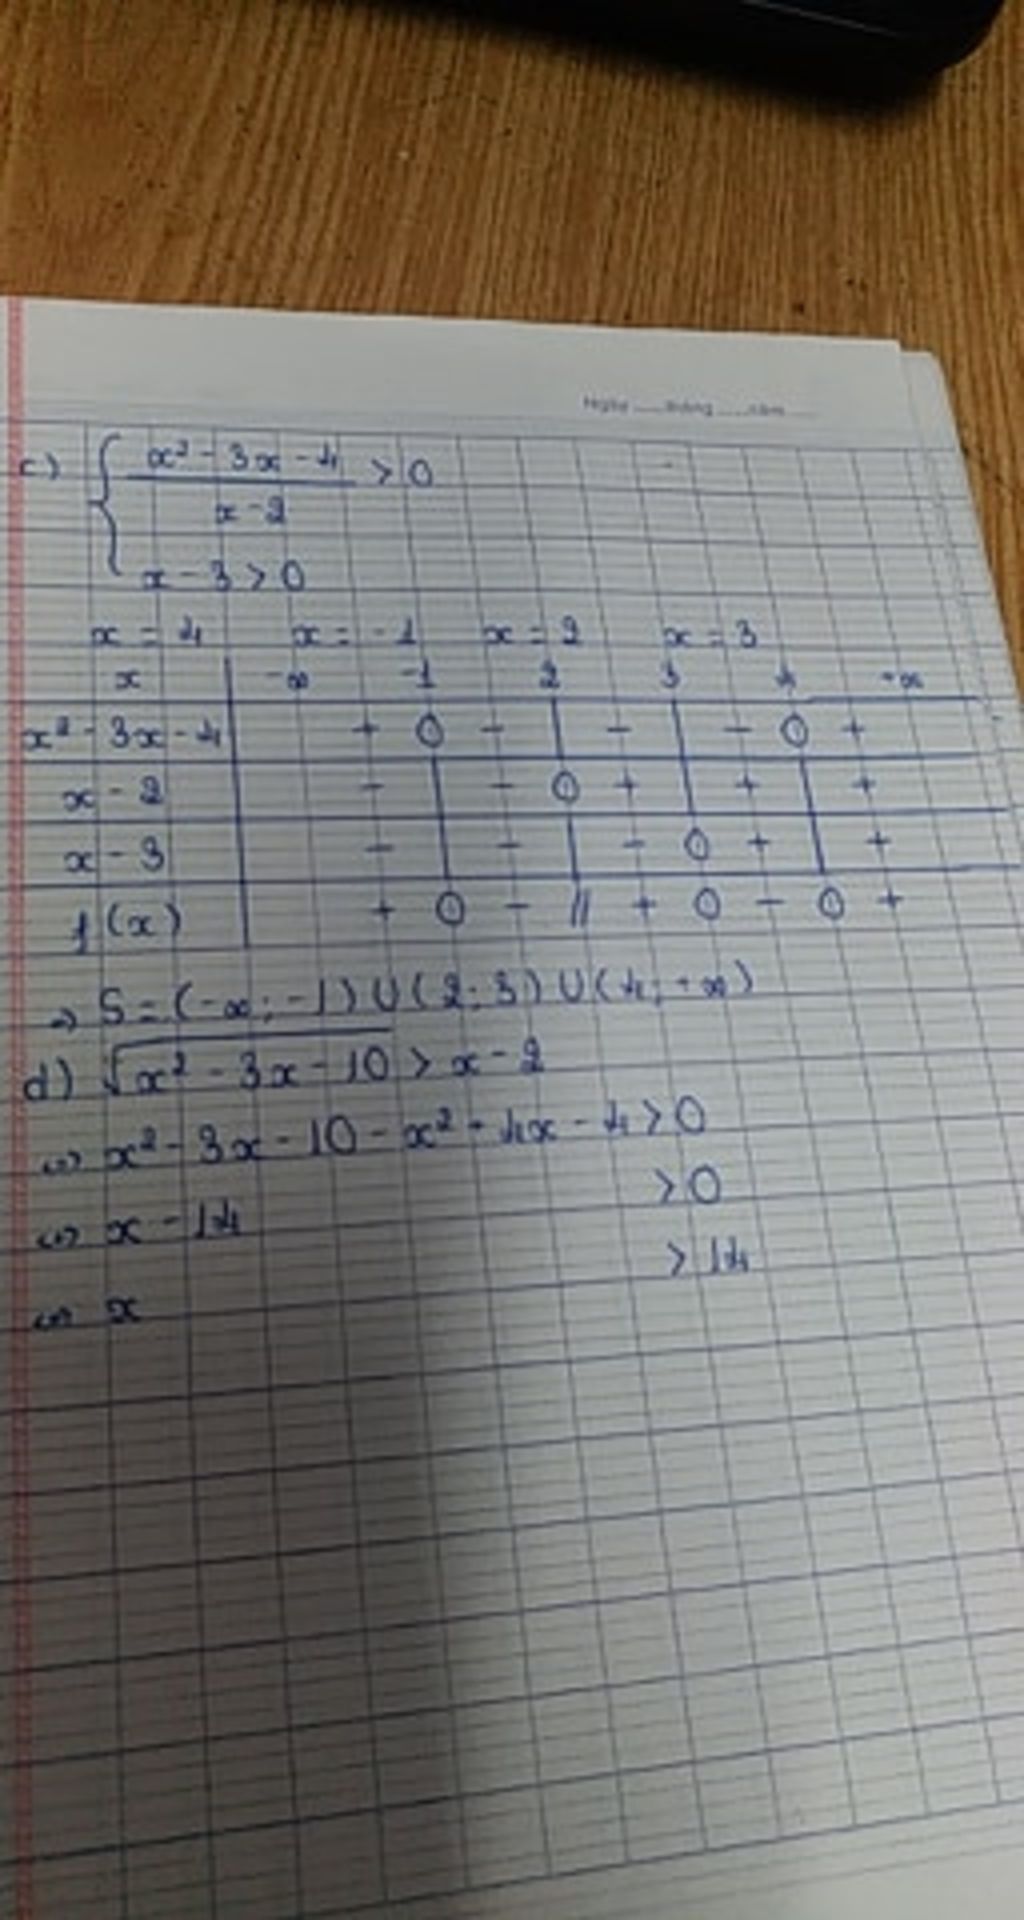 Ngày tháng năm
c) { x² - 3x - 4 / x - 2 > 0
x - 3 > 0
x = 4 x = -1 x = 2 x = 3
x -∞ -1 2 3 4 +∞
x² - 3x - 4 + 0 - | - | - 0 +
x - 2 - | - 0 + | + | +
x - 3 - | - | - 0 + | +
f(x) + 0 - || + 0 - 0 +
=> S = (-∞; -1) ∪ (2; 3) ∪ (4; +∞)
d) √x² - 3x - 10 > x - 2
<=> x² - 3x - 10 - x² + 4x - 4 > 0
<=> x - 14 > 0
<=> x > 14